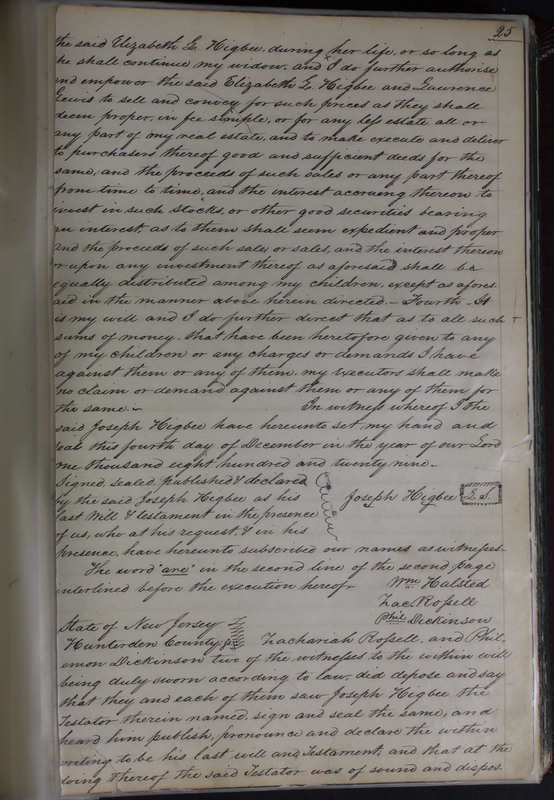 25
the said Elizabeth L. Higbee, during her life, or so long as
she shall continue my widow, and I do further authorise
and empower the said Elizabeth L. Higbee and Lawrence
Lewis to sell and convey for such prices as they shall
deem proper, in fee simple, or for any less estate all or
any part of my real estate, and to make execute and deliver
to purchasers thereof good and sufficient deeds for the
same, and the proceeds of such sales or any part thereof
from time to time, and the interest accrueng thereon to
invest in such stocks, or other good securities bearing
an interest, as to them shall seem expedient and proper
and the proceeds of such sale or sales, and the interest thereon
or upon any investment thereof as aforesaid shall be
equally distributed among my children, except as afores.
aid in the manner above herein directed - Fourth - It
is my will and I do further direct that as to all such
sums of money that have been heretofore given to any
of my children or any charges or demands I have
against them or any of them, my executors shall make
no claim or demand against them or any of them for
the same. - In witness whereof I the
said Joseph Higbee have hereunto set my hand and
seal this fourth day of December in the year of our Lord
one thousand eight hundred and twenty nine -
Signed, sealed, published & declared
by the said Joseph Higbee as his Joseph Higbee L. S.
last Will & testament in the presence
of us, who at his request, & in his
presence, have hereunto subscribed our names as witnesses.
The word "are" in the second line of the second page
interlined before the execution hereof. Wm Halsted
Zac. Rossell
Phil. Dickinson
State of New Jersey
Hunterdon County ss Zachariah Rossell, and Phil.
emon Dickinson two of the witnesses to the within will
being duly sworn according to law, did depose and say
that they and each of them saw Joseph Higbee the
Testator therein named, sign and seal the same, and
heard him publish, pronounce and declare the within
writing to be his last will and Testament, and that at the
doing thereof the said Testator was of sound and dispos.